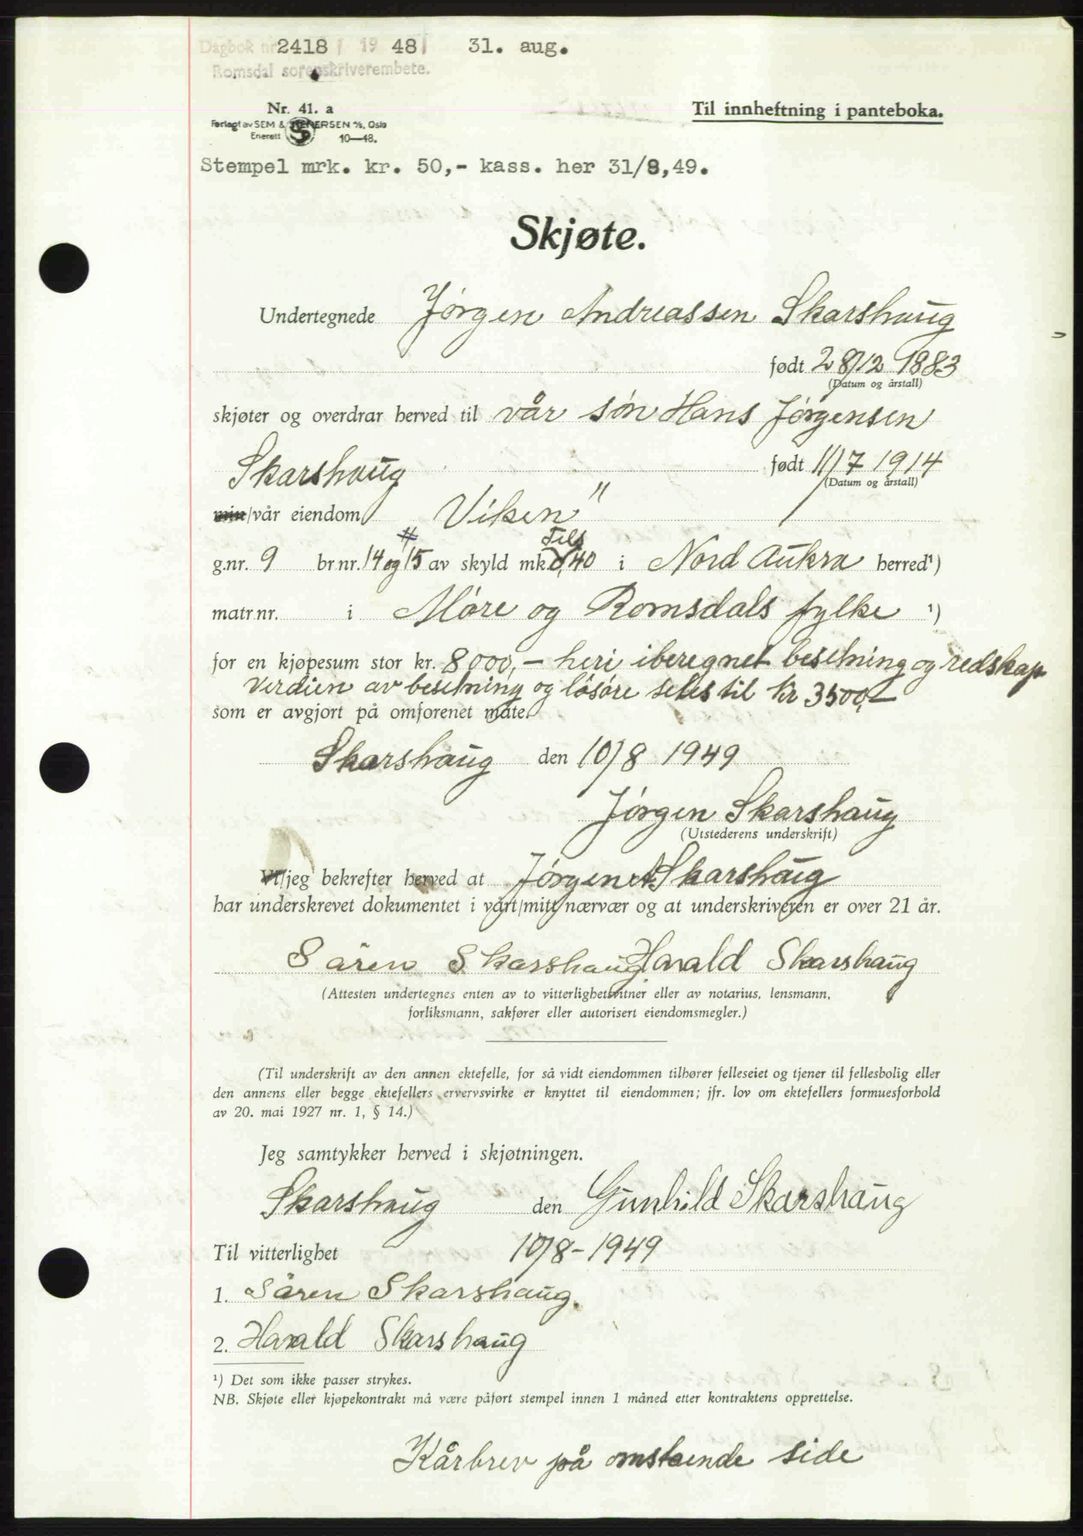 Dagbok nr. 2418 / 19 48 / 31. aug.
Romsdal sorenskriverembete.
Nr. 41. a
Til innheftning i panteboka.
Forlagt av SEM & STENERSEN A/S, Oslo
Enerett 10—48.
Stempel mrk. kr. 50,- kass. her 31/8,49.
Skjøte.
Undertegnede Jørgen Andreassen Skarshaug
født 28/12 1883
(Datum og årstall)
skjøter og overdrar herved til vår søn Hans Jørgensen
Skarshaug født 11/7 1914
(Datum og årstall)
min/vår eiendom Viken"
g.nr. 9 br.nr. 14 og 15 av skyld mk 0,40 i Nord Aukra herred¹)
matr.nr. i Møre og Romsdals fylke ¹)
for en kjøpesum stor kr. 8000,- heri iberegnet besetning og redskap
verdien av besetning og løsøre setes til kr 3500,-
som er avgjort på omforenet måte.
Skarshaug den 10/8 1949
Jørgen Skarshaug
(Utstederens underskrift)
Vi/jeg bekrefter herved at Jørgen A Skarshaug
har underskrevet dokumentet i vårt/mitt nærvær og at underskriveren er over 21 år.
Sören Skarshaug Harald Skarshaug
(Attesten undertegnes enten av to vitterlighetsvitner eller av notarius, lensmann,
forliksmann, sakfører eller autorisert eiendomsmegler.)
(Til underskrift av den annen ektefelle, for så vidt eiendommen tilhører felleseiet og tjener til fellesbolig eller
den annens eller begge ektefellers ervervsvirke er knyttet til eiendommen; jfr. lov om ektefellers formuesforhold
av 20. mai 1927 nr. 1, § 14.)
Jeg samtykker herved i skjøtningen.
Skarshaug den Gunhild Skarshaug
Til vitterlighet 10/8-1949
1. Sören Skarshaug.
2. Harald Skarshaug
¹) Det som ikke passer strykes.
NB. Skjøte eller kjøpekontrakt må være påført stempel innen 1 måned etter kontraktens opprettelse.
Kårbrev på omstående side